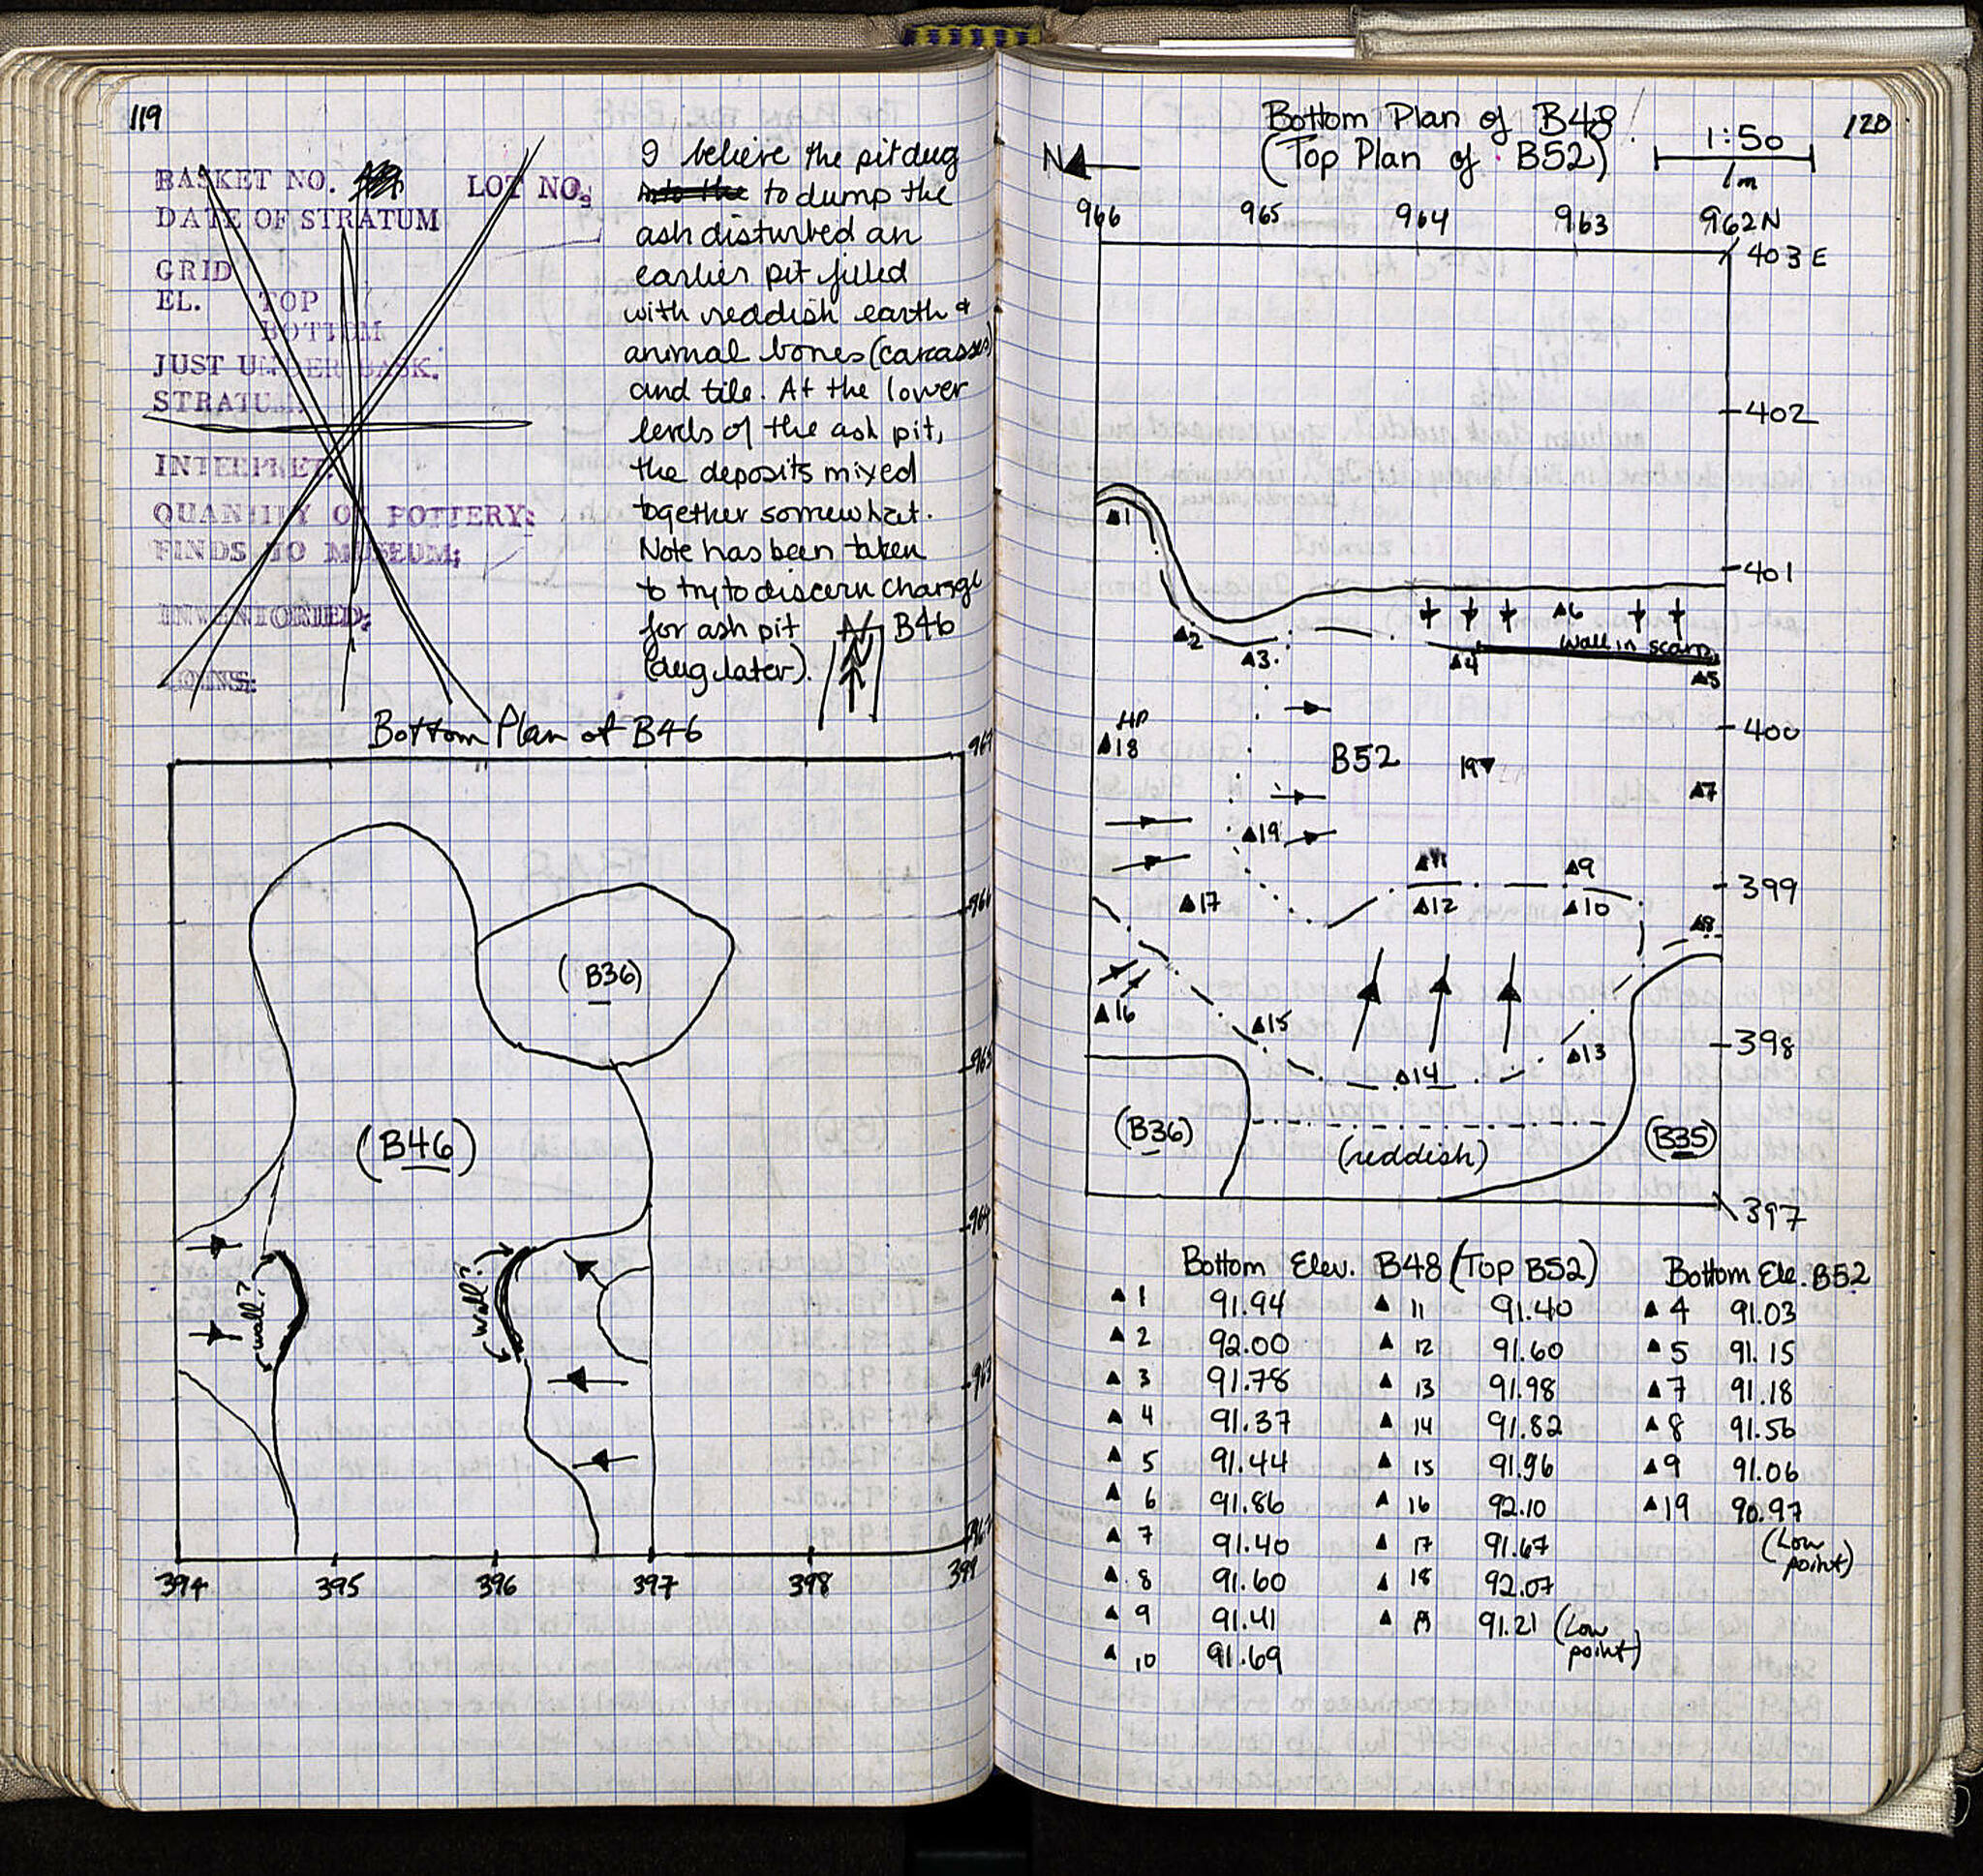 119
BASKET NO. LOT NO.
DATE OF STRATUM
GRID
EL. TOP
BOTTOM
JUST UNDER BASK.
STRATUM
INTERPRET.
QUANTITY OF POTTERY:
FINDS TO MUSEUM;
INVENTORIED;
COINS:
I believe the pit dug
into the to dump the
ash disturbed an
earlier pit filled
with reddish earth &
animal bones (carcasses)
and tile. At the lower
levels of the ash pit,
the deposits mixed
together somewhat.
Note has been taken
to try to discern change
for ash pit B46
(dug later).
N
Bottom Plan of B46
967
966
(B36)
965
(B46)
964
wall?
wall?
963
962
394 395 396 397 398 399
120
Bottom Plan of B48
(Top Plan of B52)
1:50
1m
N
966 965 964 963 962N
403 E
402
▲1
401
▲6
▲2
wall in scarp
▲3. ▲4
▲5
400
HP
▲18
B52
19▼
▲7
▲19
▲11 ▲9
399
▲17 ▲12 ▲10
▲8
▲16
▲15
398
▲13
▲14
(B36)
(reddish)
(B35)
397
Bottom Elev. B48 (Top B52) Bottom Ele. B52
▲ 1 91.94 ▲ 11 91.40 ▲ 4 91.03
▲ 2 92.00 ▲ 12 91.60 ▲ 5 91.15
▲ 3 91.78 ▲ 13 91.98 ▲ 7 91.18
▲ 4 91.37 ▲ 14 91.82 ▲ 8 91.56
▲ 5 91.44 ▲ 15 91.96 ▲ 9 91.06
▲ 6 91.86 ▲ 16 92.10 ▲ 19 90.97
▲ 7 91.40 ▲ 17 91.67 (Low
point)
▲ 8 91.60 ▲ 18 92.07
▲ 9 91.41 ▲ 19 91.21 (Low
point)
▲ 10 91.69